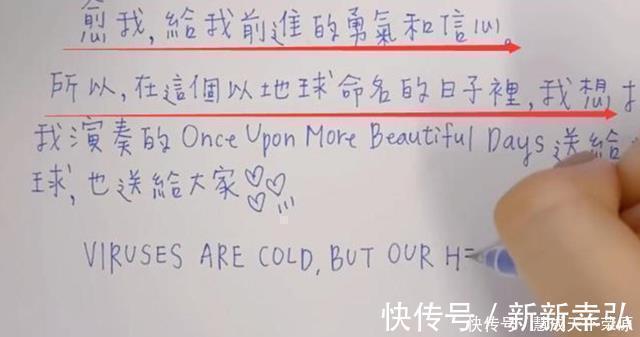 愈我,給我前進的勇氣和信心。
所以,在這個以地球命名的日子裡,我想
我演奏的Once Upon More Beautiful Days送給
球,也送給大家
VIRUSES ARE COLD, BUT OUR H
快传号/新新幸弘
快传号/慧成天下荣原